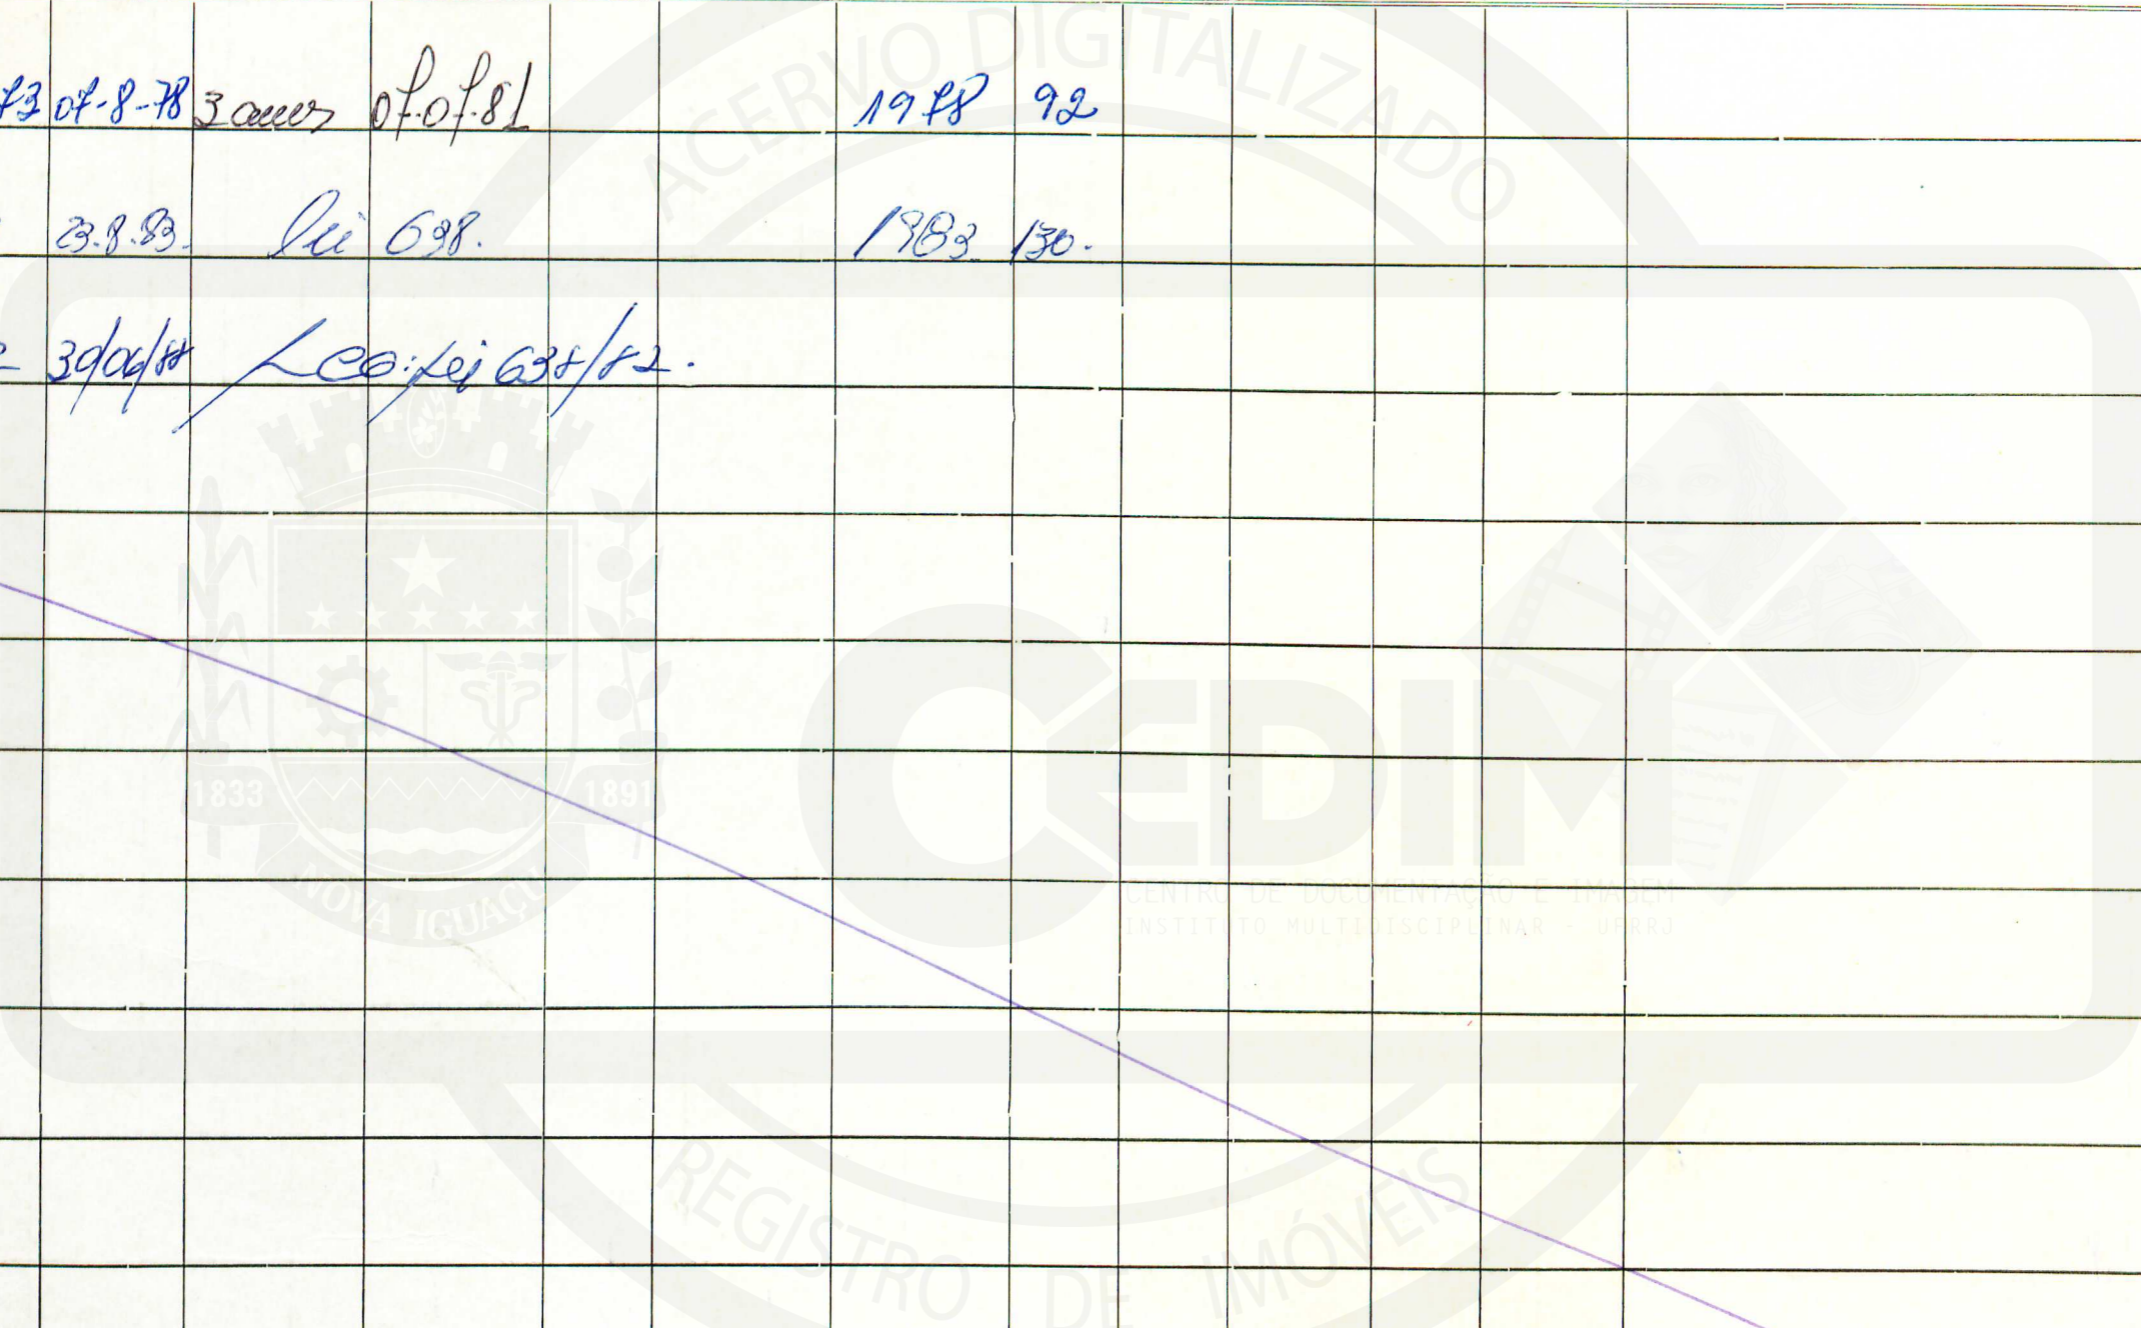 73 07-8-78 3 anos 07.07.81 1978 92
23.8.83. lei 638. 1983 130.
30/06/88 Lei 638/82.
ACERVO DIGITALIZADO
1833 1891
NOVA IGUAÇU
CEDIM
CENTRO DE DOCUMENTAÇÃO E IMAGEM
INSTITUTO MULTIDISCIPLINAR - UFRRJ
REGISTRO DE IMÓVEIS